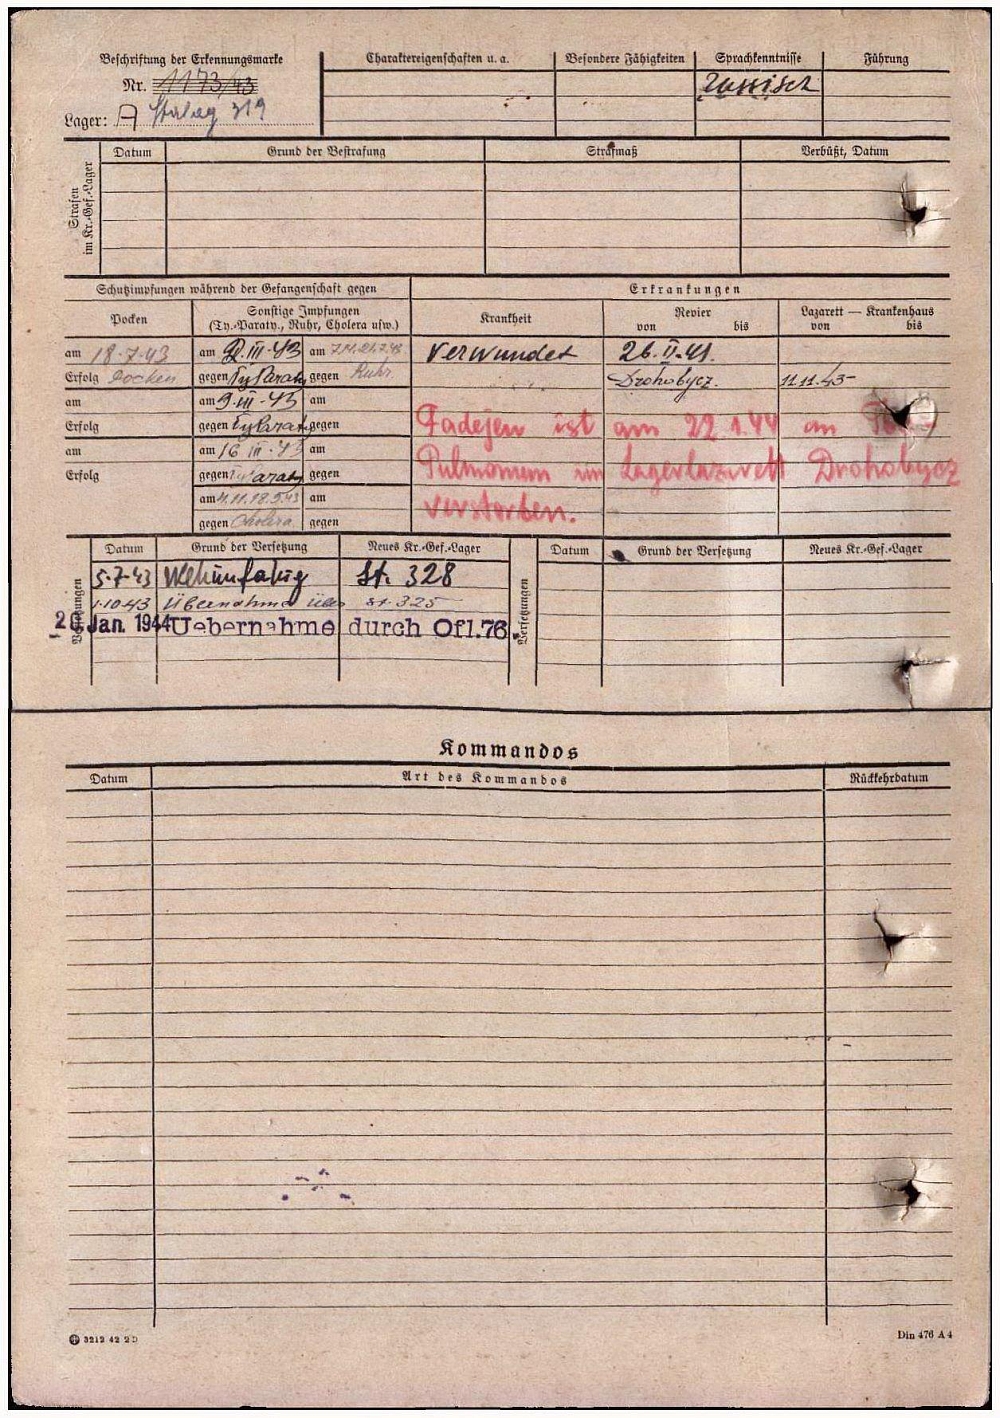 Beschriftung der Erkennungsmarke
Nr. 1173/43
Lager: A Stalag 319
Charaktereigenschaften u. a.
Besondere Fähigkeiten
Sprachkenntnisse
russisch
Führung
Strafen im Kr.-Gef.-Lager
Datum
Grund der Bestrafung
Strafmaß
Verbüßt, Datum
Schutzimpfungen während der Gefangenschaft gegen
Erkrankungen
Pocken
Sonstige Impfungen
(Ty.-Paraty., Ruhr, Cholera usw.)
Krankheit
Revier
von bis
Lazarett — Krankenhaus
von bis
am 18.7.43 am 2.III.43 am verwundet 26.II.41.
Erfolg Pocken gegen Ty Paraty gegen Ruhr Drohobycz. 11.11.43-
am am 9.III.43 am
Erfolg gegen Ty Paraty gegen
am am 16 III.43 am
Erfolg gegen Ty Paraty gegen
am 4.11.18.5.43 am
gegen Cholera gegen
Fadejen ist am 22.1.44 an
Pulmonum im Lagerlazarett Drohobycz
verstorben.
Versetzungen
Datum
Grund der Versetzung
Neues Kr.-Gef.-Lager
Datum
Grund der Versetzung
Neues Kr.-Gef.-Lager
5.7.43 St. 328
1.10.43 Übernahme St. 325
Jan. 1944 Uebernahme durch Ofl. 76.
Versetzungen
Kommandos
Datum
Art des Kommandos
Rückkehrdatum
3212 42 2 D
Din 476 A 4